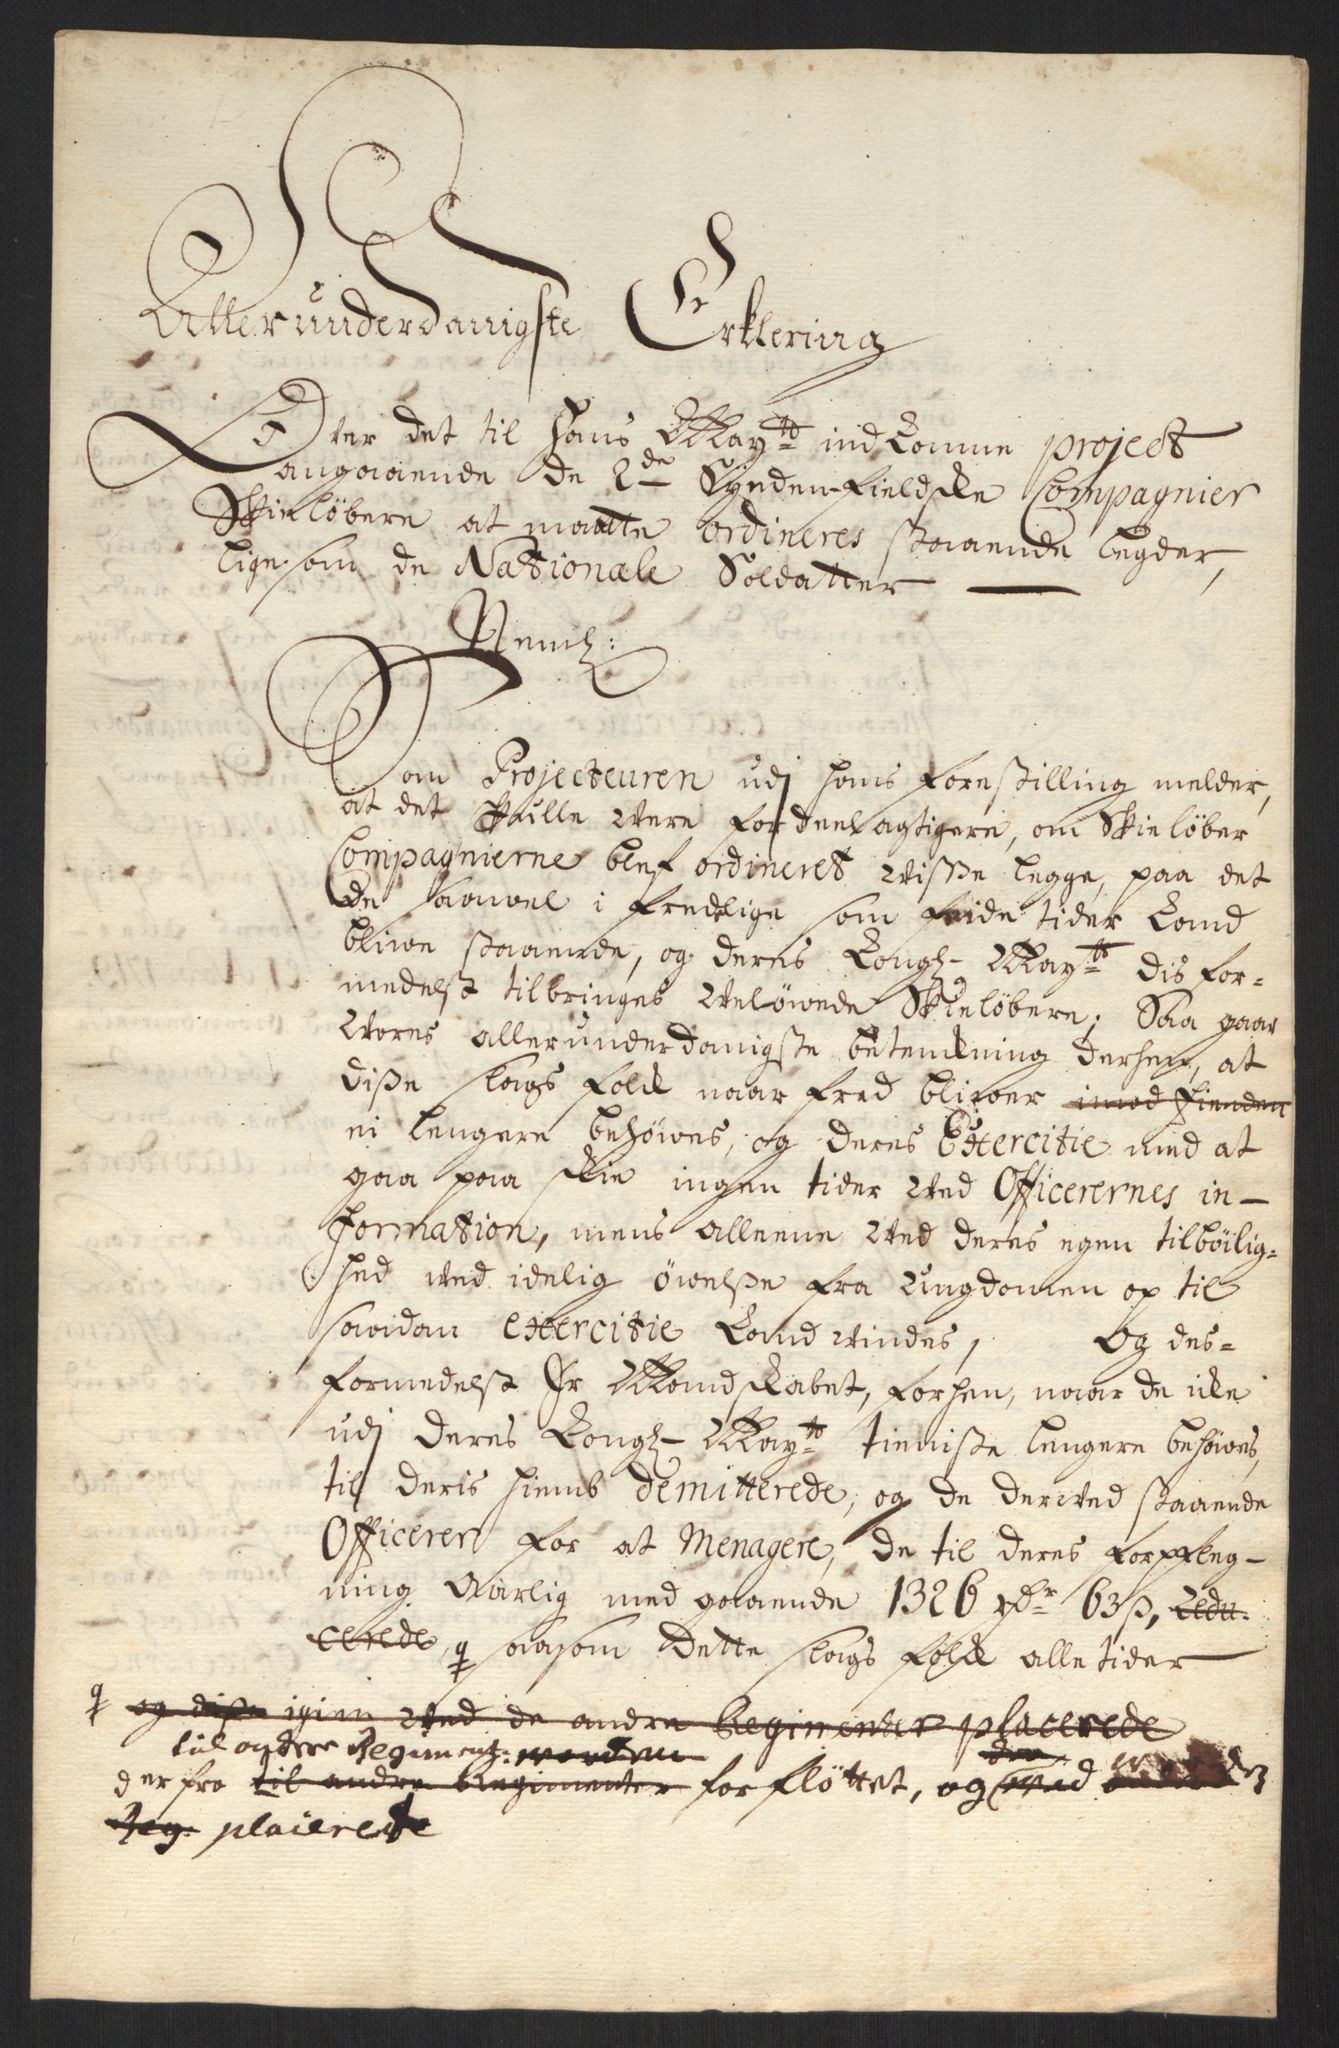 Allerunderdanigste Erklering
Over det til Hans Mayts indkomne project
angaaende de 2de Synden-fieldske Compagnier
Skieløbere at maatte ordineres staaende legder,
lige som de Nationale Soldatter
Neml:
Som Projecteuren udj hans forestilling melder,
at det skulle were fordeelagtigere, om Skieløber
Compagnierne blef ordineret wisse legge, paa det
de saawel i fredelige som feide tider kand
bliwe staaende, og deres Kongl- Mayts dis for-
medelst tilbringes weløwede Skieløbere; Saa gaar
Wores allerunderdanigste betenkning derhen, at
disse slags folk naar fred bliwer imod fienden
ei lengere behøwes, og deres Exercitie med at
gaa paa skie ingen tider wed Officerernes in-
formation, mens alleene wed deres egen tilbøilig-
hed wed idelig øwelse fra Ungdommen op til
saadan exercitie kand windes, Og des-
formedelst Er Mandskabet, forhen, naar de icke
udj deres Kongl- Mayts tieniste lengere behøwes,
til deris hiemb demitterede, og de derwed staaende
Officerer for at Menagere, de til deres forpfleg-
ning Aarlig med gaaende 1326 rdr 63 ß, redu-
cerede, saasom dette slags folk alle tider
og disse igien wed de andre Regimenter placerede
til andere Regiment:
der fra til andre Regimenter forfløttet, og
Reg: placerede